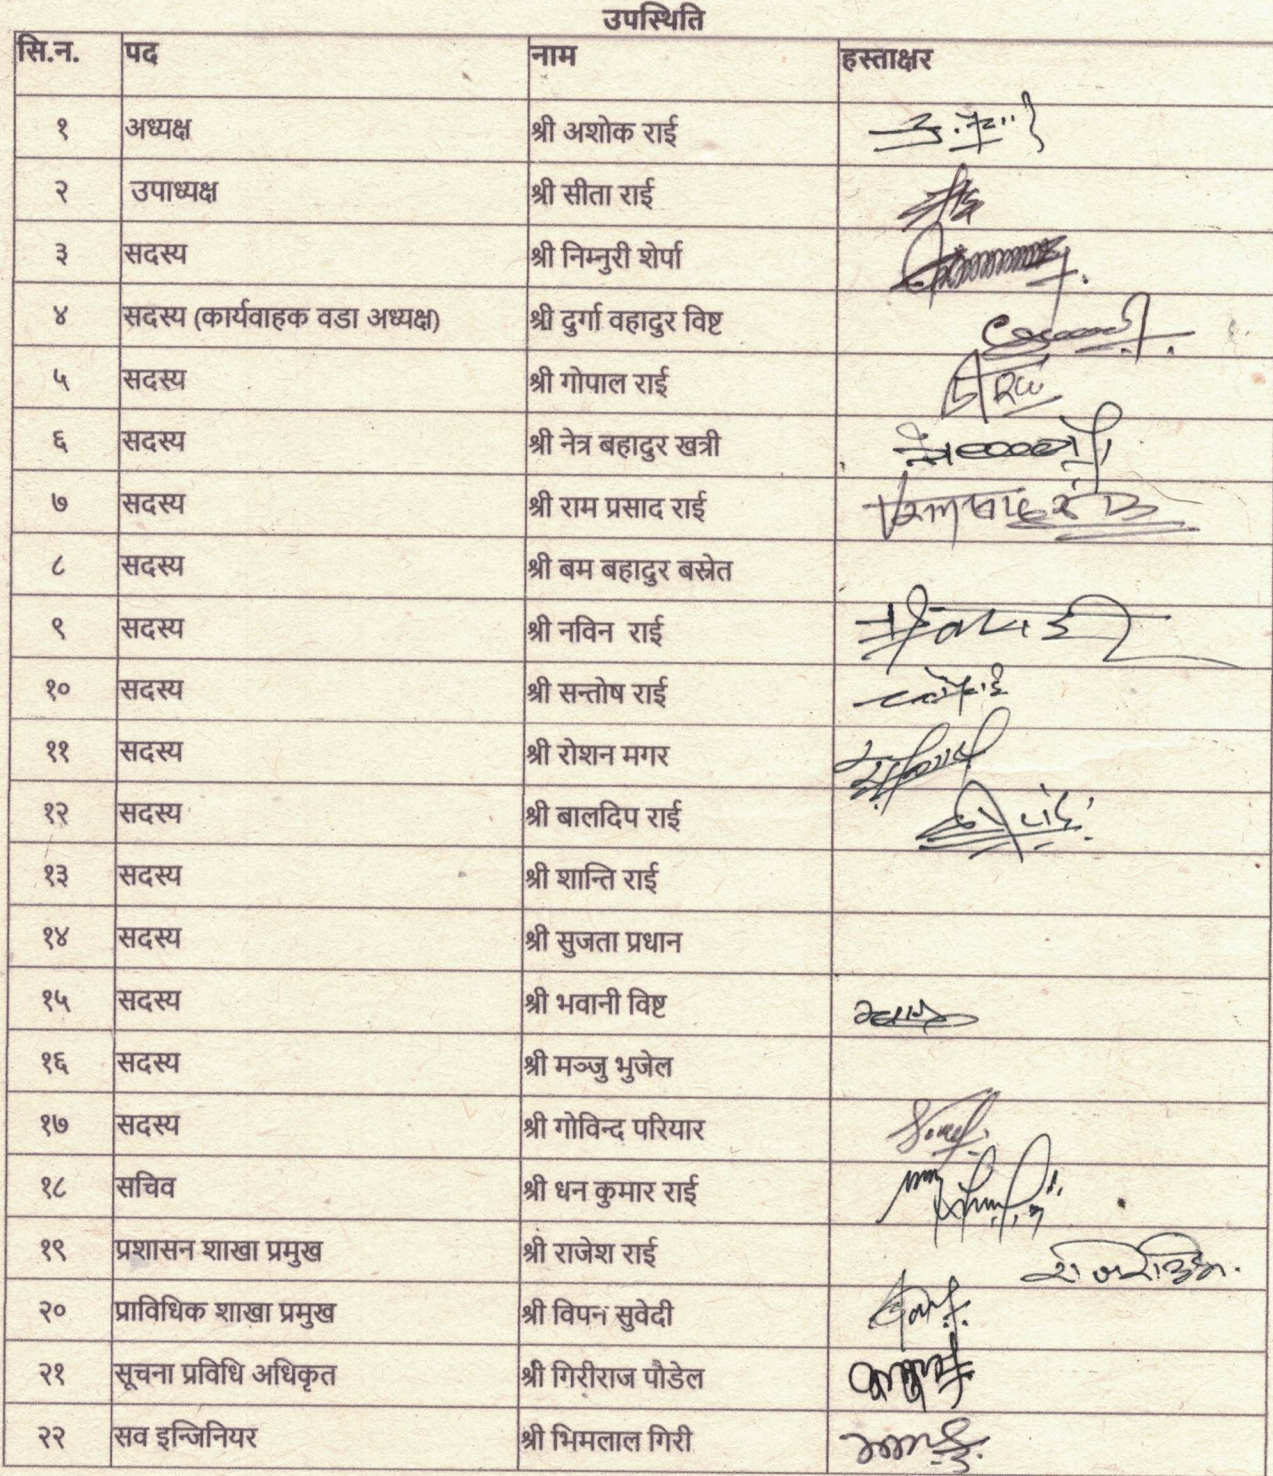 उपस्थिति
सि.न. पद नाम हस्ताक्षर
१ अध्यक्ष श्री अशोक राई
२ उपाध्यक्ष श्री सीता राई
३ सदस्य श्री निम्नुरी शेर्पा
४ सदस्य (कार्यवाहक वडा अध्यक्ष) श्री दुर्गा वहादुर विष्ट
५ सदस्य श्री गोपाल राई
६ सदस्य श्री नेत्र बहादुर खत्री
७ सदस्य श्री राम प्रसाद राई
८ सदस्य श्री बम बहादुर बस्नेत
९ सदस्य श्री नविन राई
१० सदस्य श्री सन्तोष राई
११ सदस्य श्री रोशन मगर
१२ सदस्य श्री बालदिप राई
१३ सदस्य श्री शान्ति राई
१४ सदस्य श्री सुजता प्रधान
१५ सदस्य श्री भवानी विष्ट
१६ सदस्य श्री मञ्जु भुजेल
१७ सदस्य श्री गोविन्द परियार
१८ सचिव श्री धन कुमार राई
१९ प्रशासन शाखा प्रमुख श्री राजेश राई
२० प्राविधिक शाखा प्रमुख श्री विपन सुवेदी
२१ सूचना प्रविधि अधिकृत श्री गिरीराज पौडेल
२२ सव इन्जिनियर श्री भिमलाल गिरी